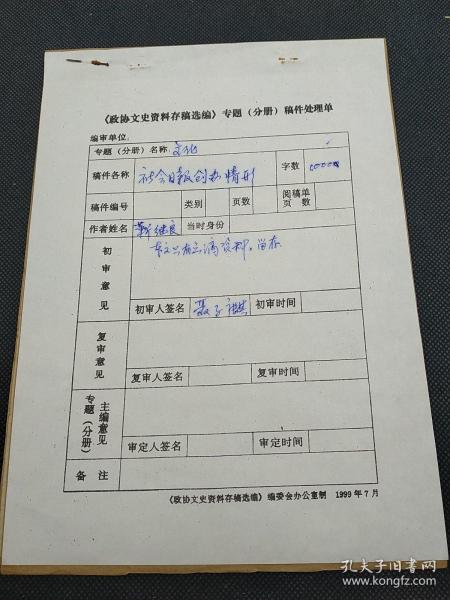 《政协文史资料存稿选编》专题（分册）稿件处理单
编审单位：
专题（分册）名称 文化
稿件各称 社会日报创办情形 字数
稿件编号 类别 页数 阅稿单页数
作者姓名 靳继良 当时身份
初审意见 留存
初审人签名 聂 初审时间
复审意见
复审人签名 复审时间
专题（分册）主编意见
审定人签名 审定时间
备注
《政协文史资料存稿选编》编委会办公室制 1999年7月
孔夫子旧书网
www.kongfz.com